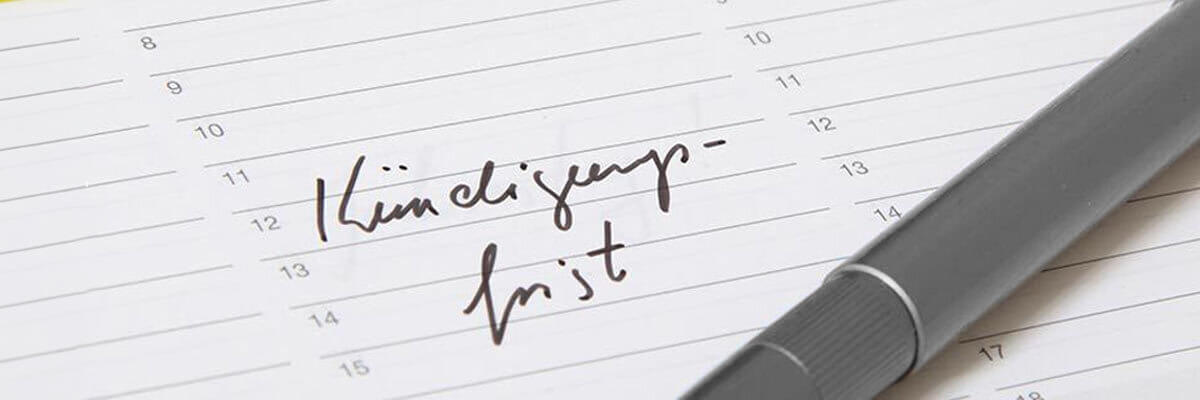 8
9
10
11
12
13
14
15
Kündigungs-
frist
10
11
12
13
14
17
18